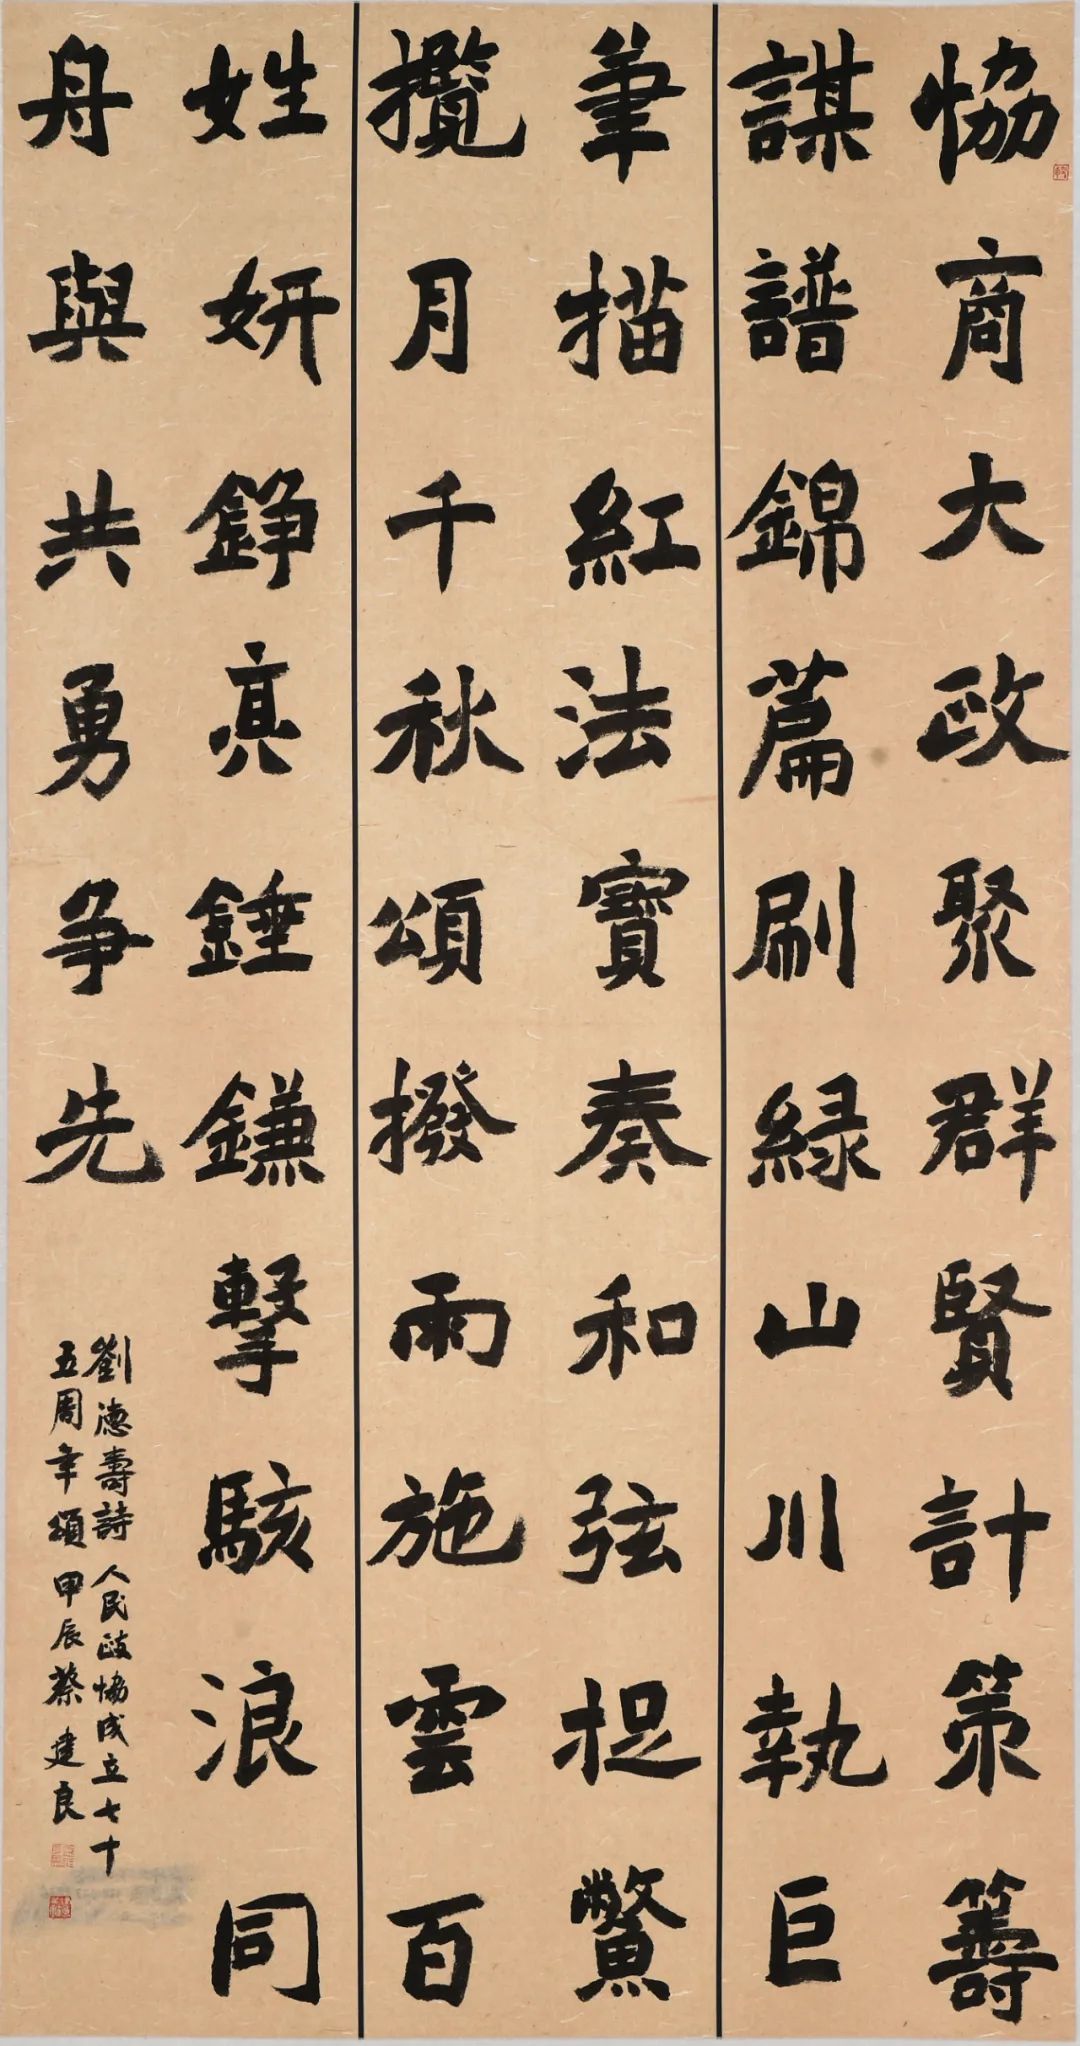 恊商大政聚群賢計策籌
謀譜錦篇刷緑山川執巨
筆描紅法寶奏和弦捉鱉
攬月千秋頌撥雨施雲百
姓妍錚亮錘鐮擊駭浪同
舟與共勇爭先
劉德壽詩人民政協成立七十
五周年頌甲辰蔡建良